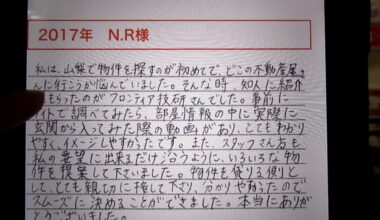 2017年 N.R様
私は、山梨で物件を探すのが初めてで、どこの不動産屋さ
んに行こうか悩んでいました。そんな時、知人に紹介
もらったのがフロンティア技研さんでした。事前に
イトで調べてみたら、部屋情報の中に実際に
玄関から入ってみた際の動画があり、とてもわかり
やすく、イメージしやすかったです。また、スタッフさん方も
私の要望に出来るだけ沿うように、いろいろな物
件を提案して下さいました。物件を借りる側と
して、とても親切に接して下さり、分かりやすかったので
スムーズに決めることができました。本当にありが
とうございました。